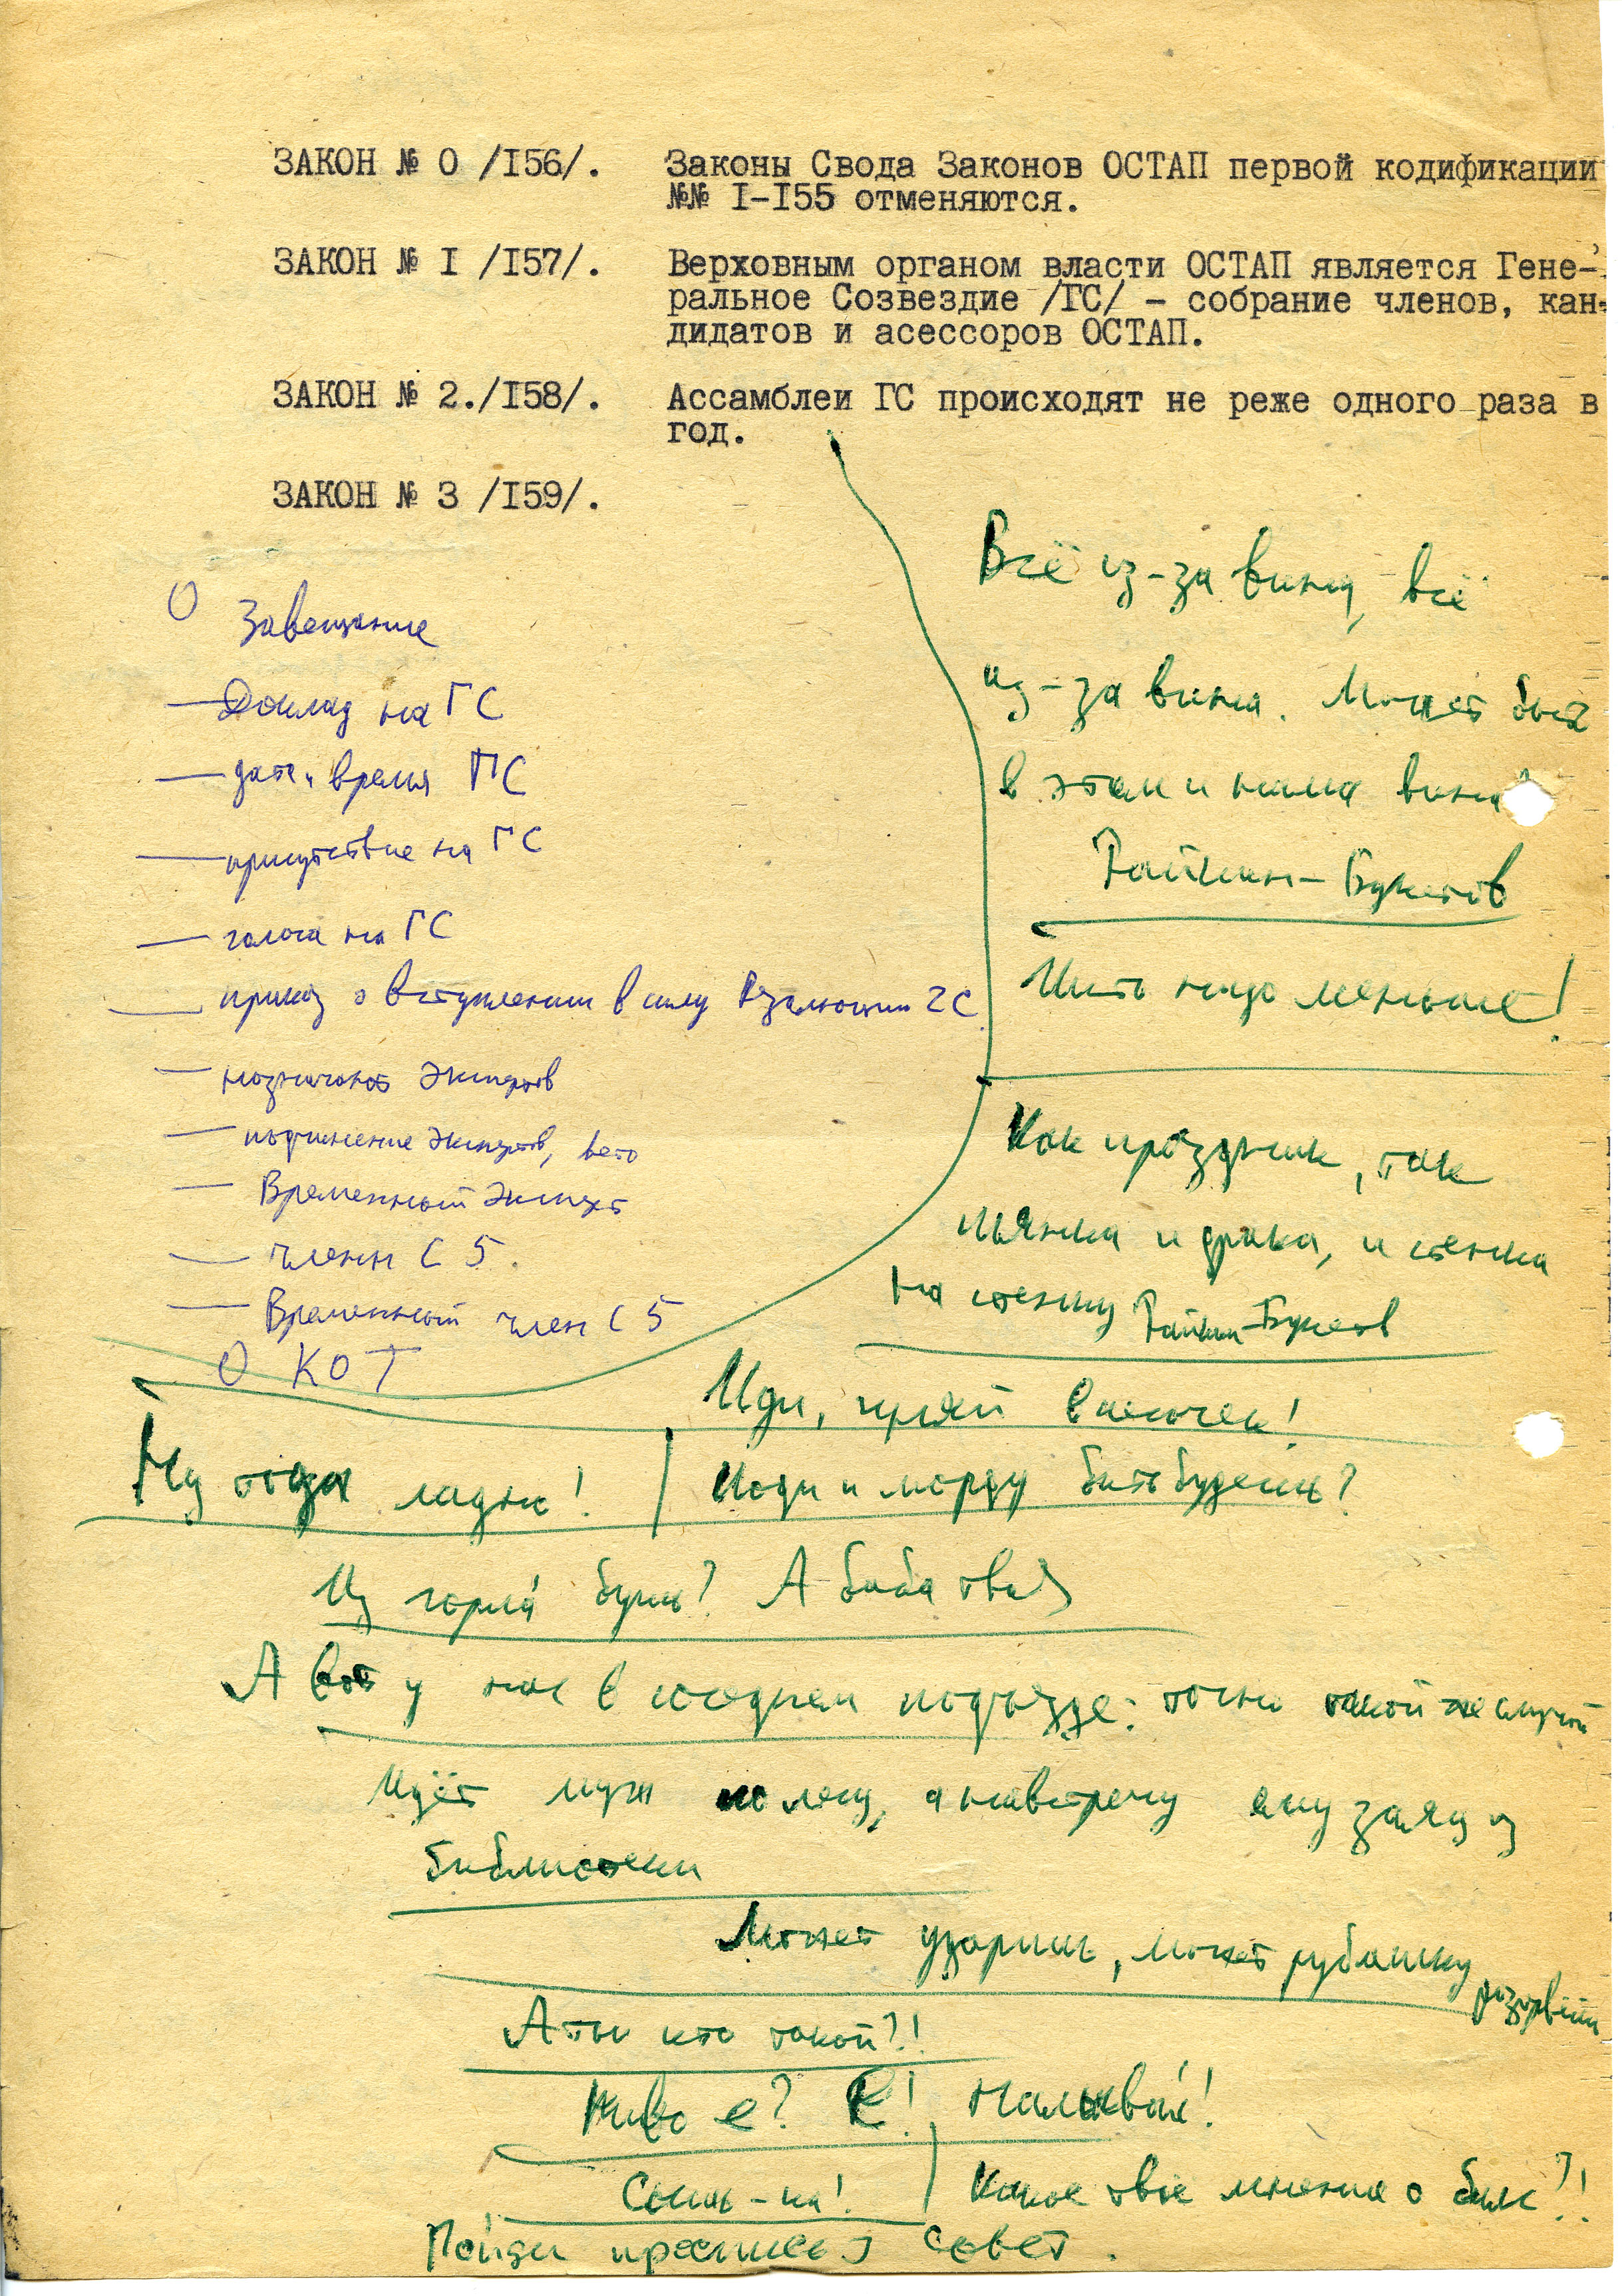 ЗАКОН № 0 /I56/. Законы Свода Законов ОСТАП первой кодификации
№№ I-I55 отменяются.
ЗАКОН № I /I57/. Верховным органом власти ОСТАП является Гене-
ральное Созвездие /ГС/ - собрание членов, кан-
дидатов и асессоров ОСТАП.
ЗАКОН № 2./I58/. Ассамблеи ГС происходят не реже одного раза в
год.
ЗАКОН № 3 /I59/.
О Завещание
— Доклад на ГС
— дата и время ГС
— присутствие на ГС
— голоса на ГС
— приказ о вступлении в силу Резолюции ГС
— назначение Экспертов
— подчинение Экспертов, вето
— Временный Эксперт
— члены С 5
— Временный член С 5
О КОТ
Всё из-за вина, всё
из-за вина. Может быть
в этом и наша вина?
Райкин-Букетов
Пить надо меньше!
Как праздник, так
пьянка и драка, и стенка
на стенку Райкин-Букетов
Иди, гуляй в песочек!
Ну тогда ладно!
Поди и морду бить будешь?
Из горла́ бушь? А баба твоя
А вот у нас в соседнем подъезде: точно такой же случай
Идёт муж по лесу, а навстречу ему заяц из
библиотеки
Может ударишь, может рубашку
разорвёшь
А ты кто такой?!
Пиво е? Е! Наливай!
Сыпь-ка!
Какое твоё мнение о бабе?!
Пойди проспись совет.